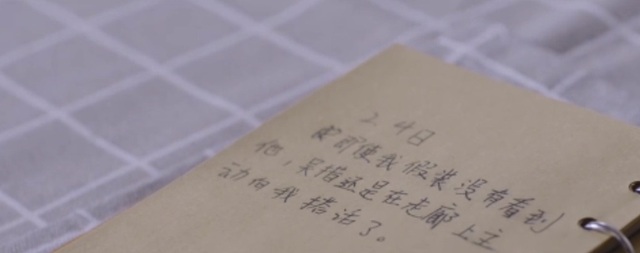 24日
即使我假装没有看到
他，吴指还是在走廊上主
动向我搭话了。